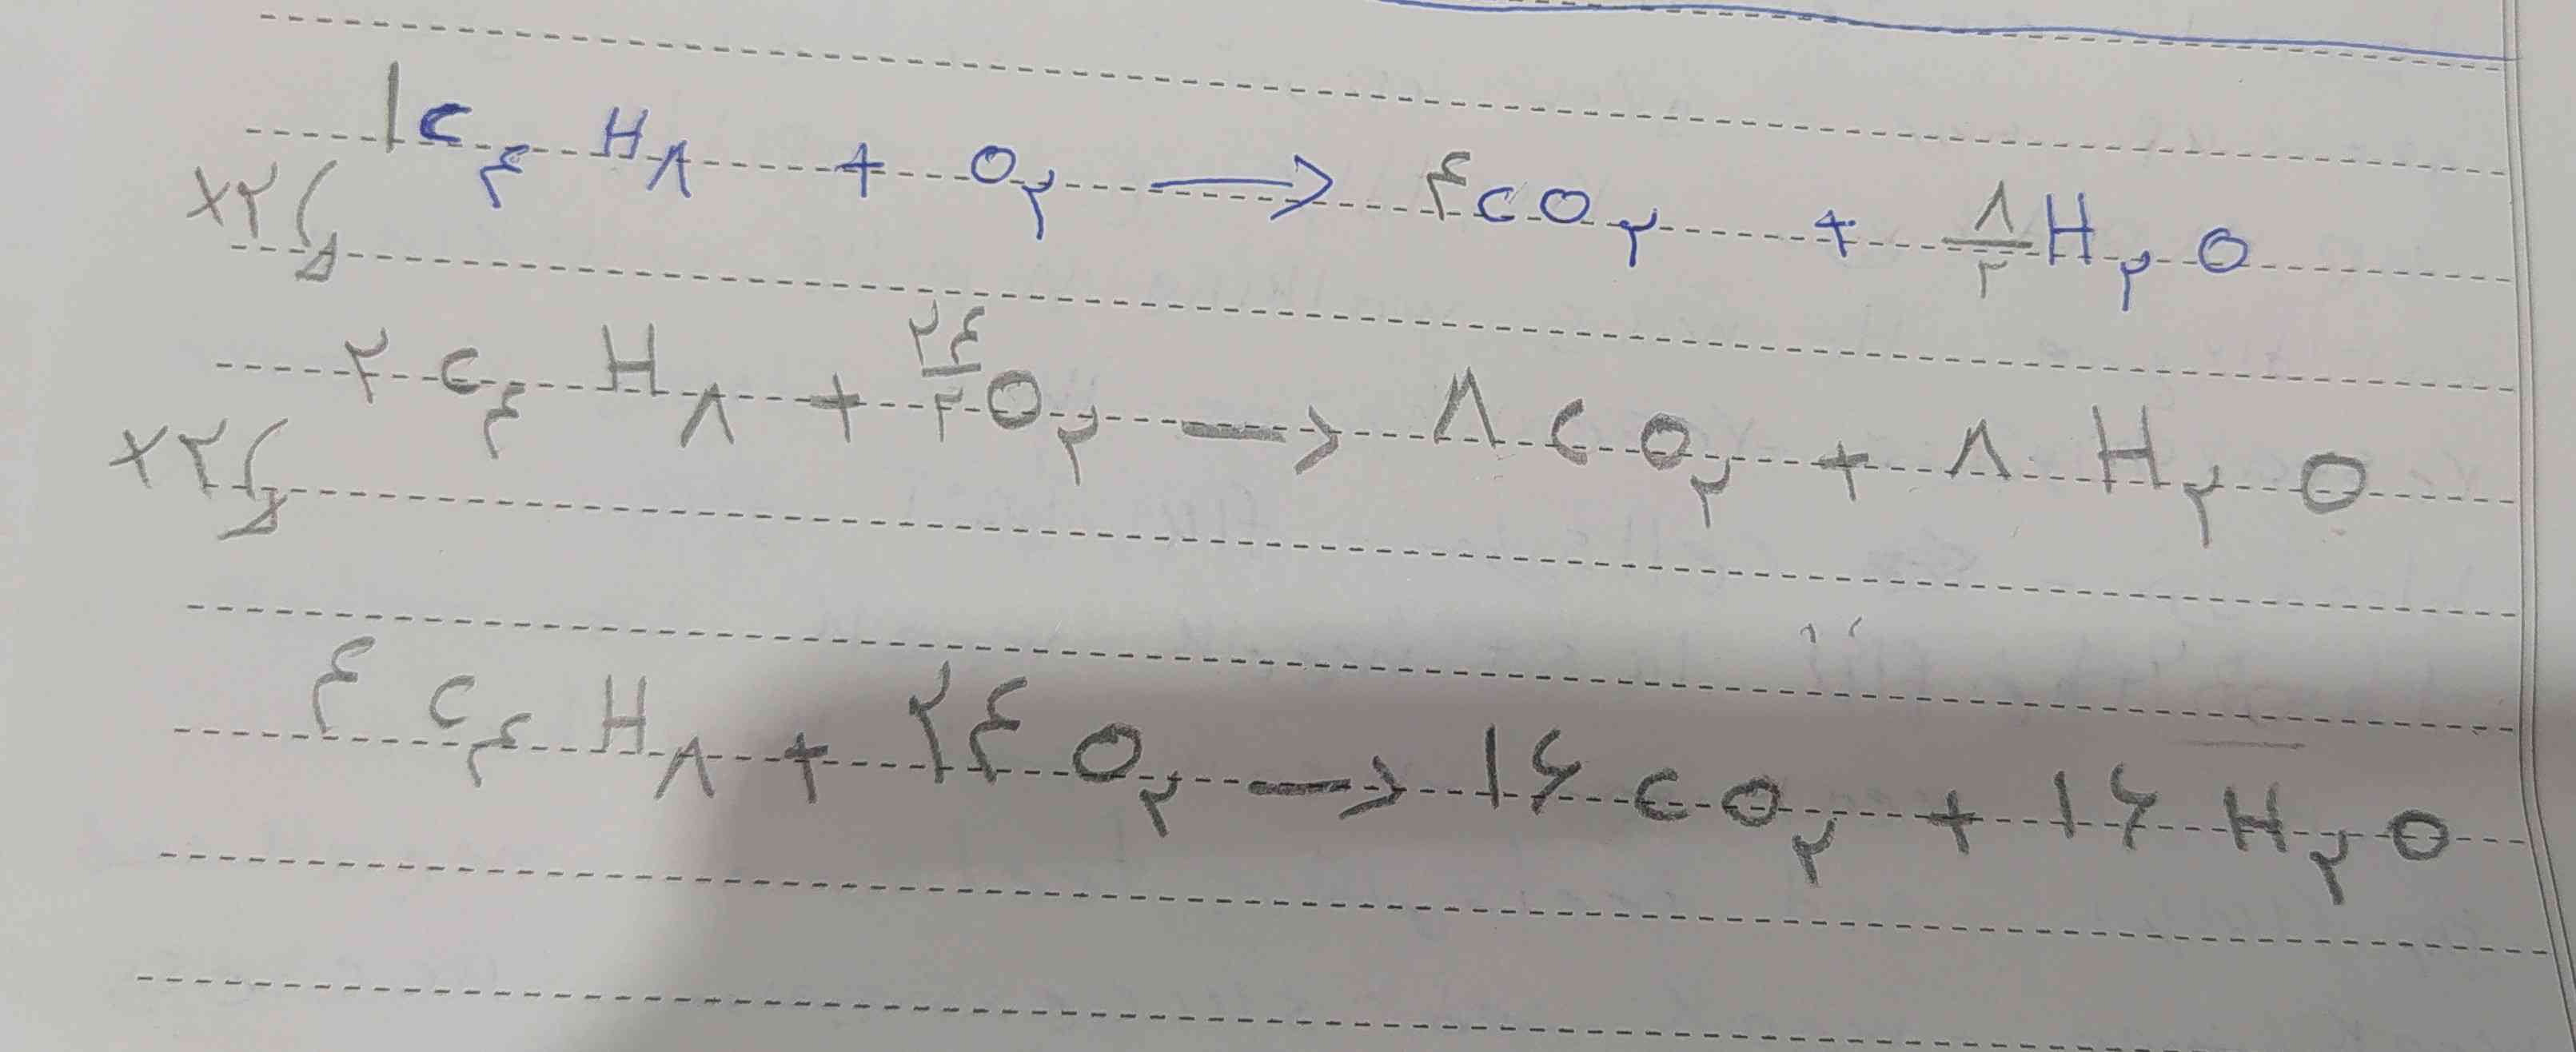 ۱C۴H۸ + O۲ → ۴CO۲ + ۸/۲H۲O
×۲
۲C۴H۸ + ۲۴/۲O۲ → ۸CO۲ + ۸H۲O
×۲
۴C۴H۸ + ۲۴O۲ → ۱۶CO۲ + ۱۶H۲O